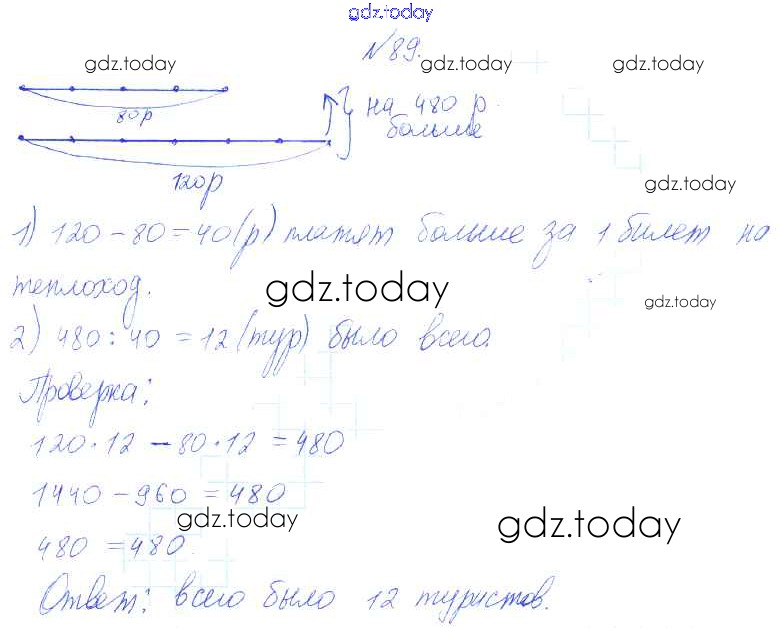 gdz.today
№89.
gdz.today gdz.today gdz.today
80р
на 480 р.
больше
120р
gdz.today
1) 120 - 80 = 40 (р) платят больше за 1 билет на
теплоход.
gdz.today gdz.today
2) 480 : 40 = 12 (тур) было всего.
Проверка:
120 · 12 - 80 · 12 = 480
1440 - 960 = 480
gdz.today gdz.today
480 = 480.
Ответ: всего было 12 туристов.